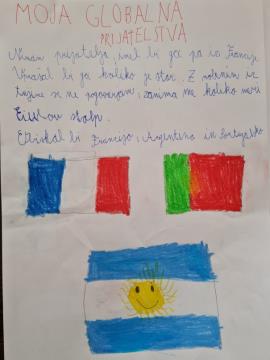 MOJA GLOBALNA
PRIJATELSTVA
Niman prijatelja, imel bi ga pa iz Francije.
Vprašal bi ga koliko je star. Z nobenim iz
tujine se ne pogovarjam, zanima me koliko meri
Eiflov stolp.
Obiskal bi Francijo, Argentino in Portugalsko